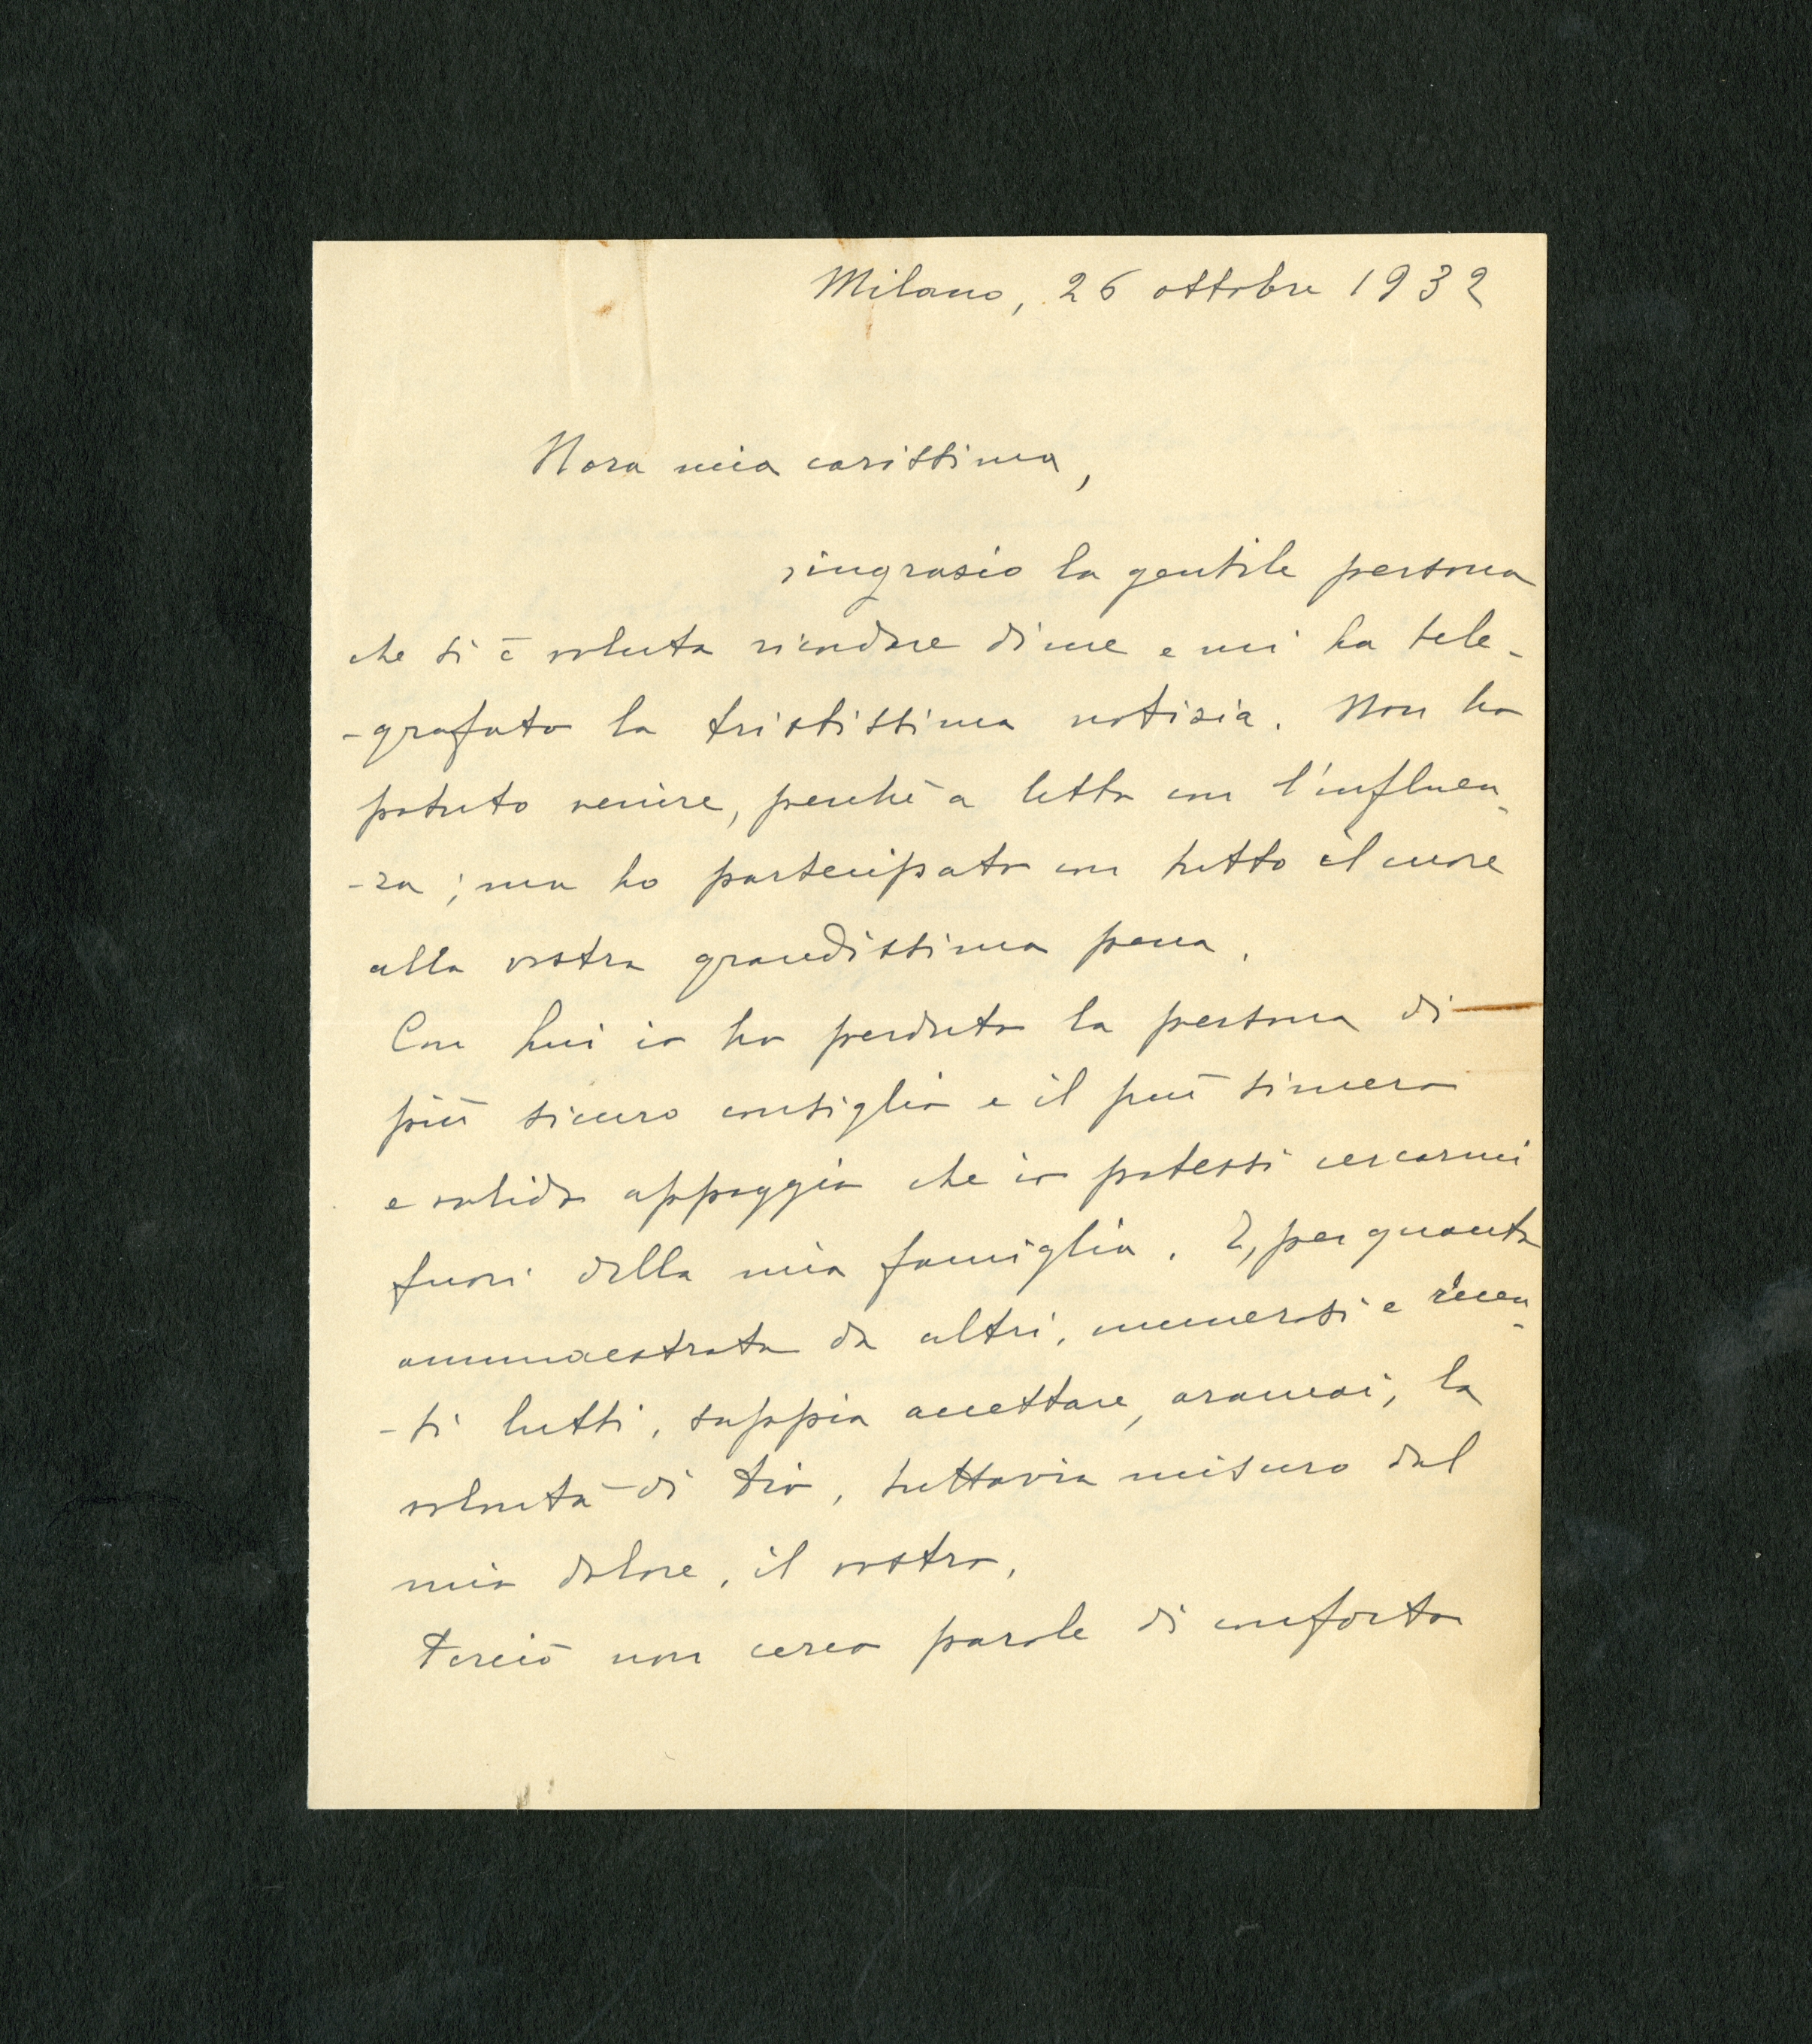 Milano, 26 ottobre 1932
Nora mia carissima,
ringrazio la gentile persona
che si è voluta ricordare di me e mi ha tele-
-grafato la tristissima notizia. Non ho
potuto venire, perchè a letto con l'influen-
-za; ma ho partecipato con tutto il cuore
alla vostra grandissima pena.
Con Lui io ho perduto la persona di
più sicuro consiglio e il più sincero
e valido appoggio che io potessi cercarmi
fuori della mia famiglia. E, per quanto
ammaestrata da altri, numerosi e recen-
-ti lutti, sappia accettare, oramai, la
volontà di Dio, tuttavia misuro dal
mio dolore, il vostro.
Perciò non cerco parole di conforto